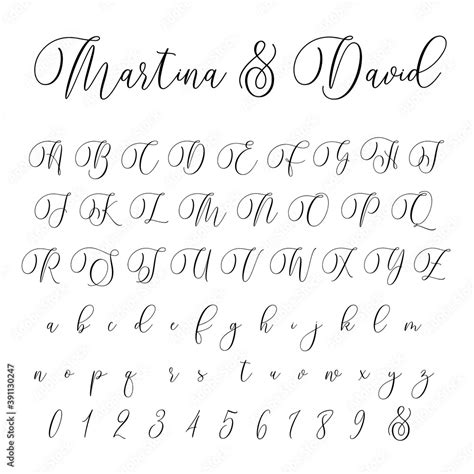 Martina & David
A B C D E F G H I
J K L M N O P Q
R S T U V W X Y Z
a b c d e f g h i j k l m
n o p q r s t u v w x y z
0 1 2 3 4 5 6 7 8 9 &
Adobe Stock | #391130247